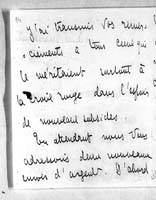 j'ai transmis vos remer-
ciements à tous ceux qui
le méritaient surtout à
la Croix rouge dans l'espoir
de nouveaux subsides
En attendant nous vous
adressons deux nouveaux
envois d'argent. D'abord